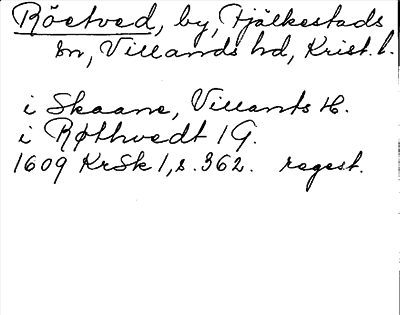 Röetved, by, Fjälkestads
sn, Villands hd, Krist. l.
i Skaane, Villants H.
i Røthvedt 1 G.
1609 KrSk 1, s. 362. regest.